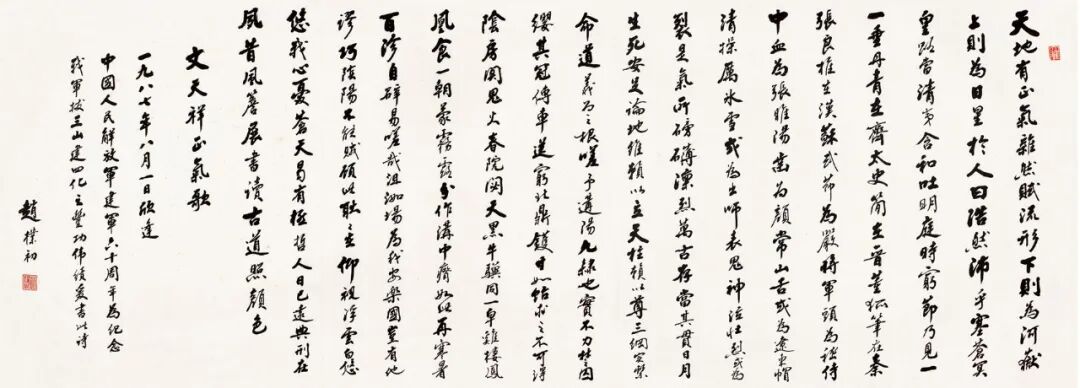 天地有正氣雜然賦流形下則為河嶽
上則為日星於人曰浩然沛乎塞蒼冥
皇路當清夷含和吐明庭時窮節乃見一
一垂丹青在齊太史簡在晉董狐筆在秦
張良椎在漢蘇武節為嚴將軍頭為嵇侍
中血為張睢陽齒為顏常山舌或為遼東帽
清操厲冰雪或為出師表鬼神泣壯烈或為
裂是氣所磅礴凜烈萬古存當其貫日月
生死安足論地維賴以立天柱賴以尊三綱實繫
命道義為之根嗟予遘陽九隸也實不力楚囚
纓其冠傳車送窮北鼎鑊甘如飴求之不可得
陰房闃鬼火春院閟天黑牛驥同一皁雞棲鳳
凰食一朝蒙霧露分作溝中瘠如此再寒暑
百沴自辟易嗟哉沮洳場為我安樂國豈有他
謬巧陰陽不能賊顧此耿耿在仰視浮雲白悠
悠我心憂蒼天曷有極哲人日已遠典刑在
夙昔風簷展書讀古道照顏色
文天祥正氣歌
一九八七年八月一日欣逢
中國人民解放軍建軍六十周年為紀念
我軍拔三山建四化之豐功偉績爰書此詩
趙樸初